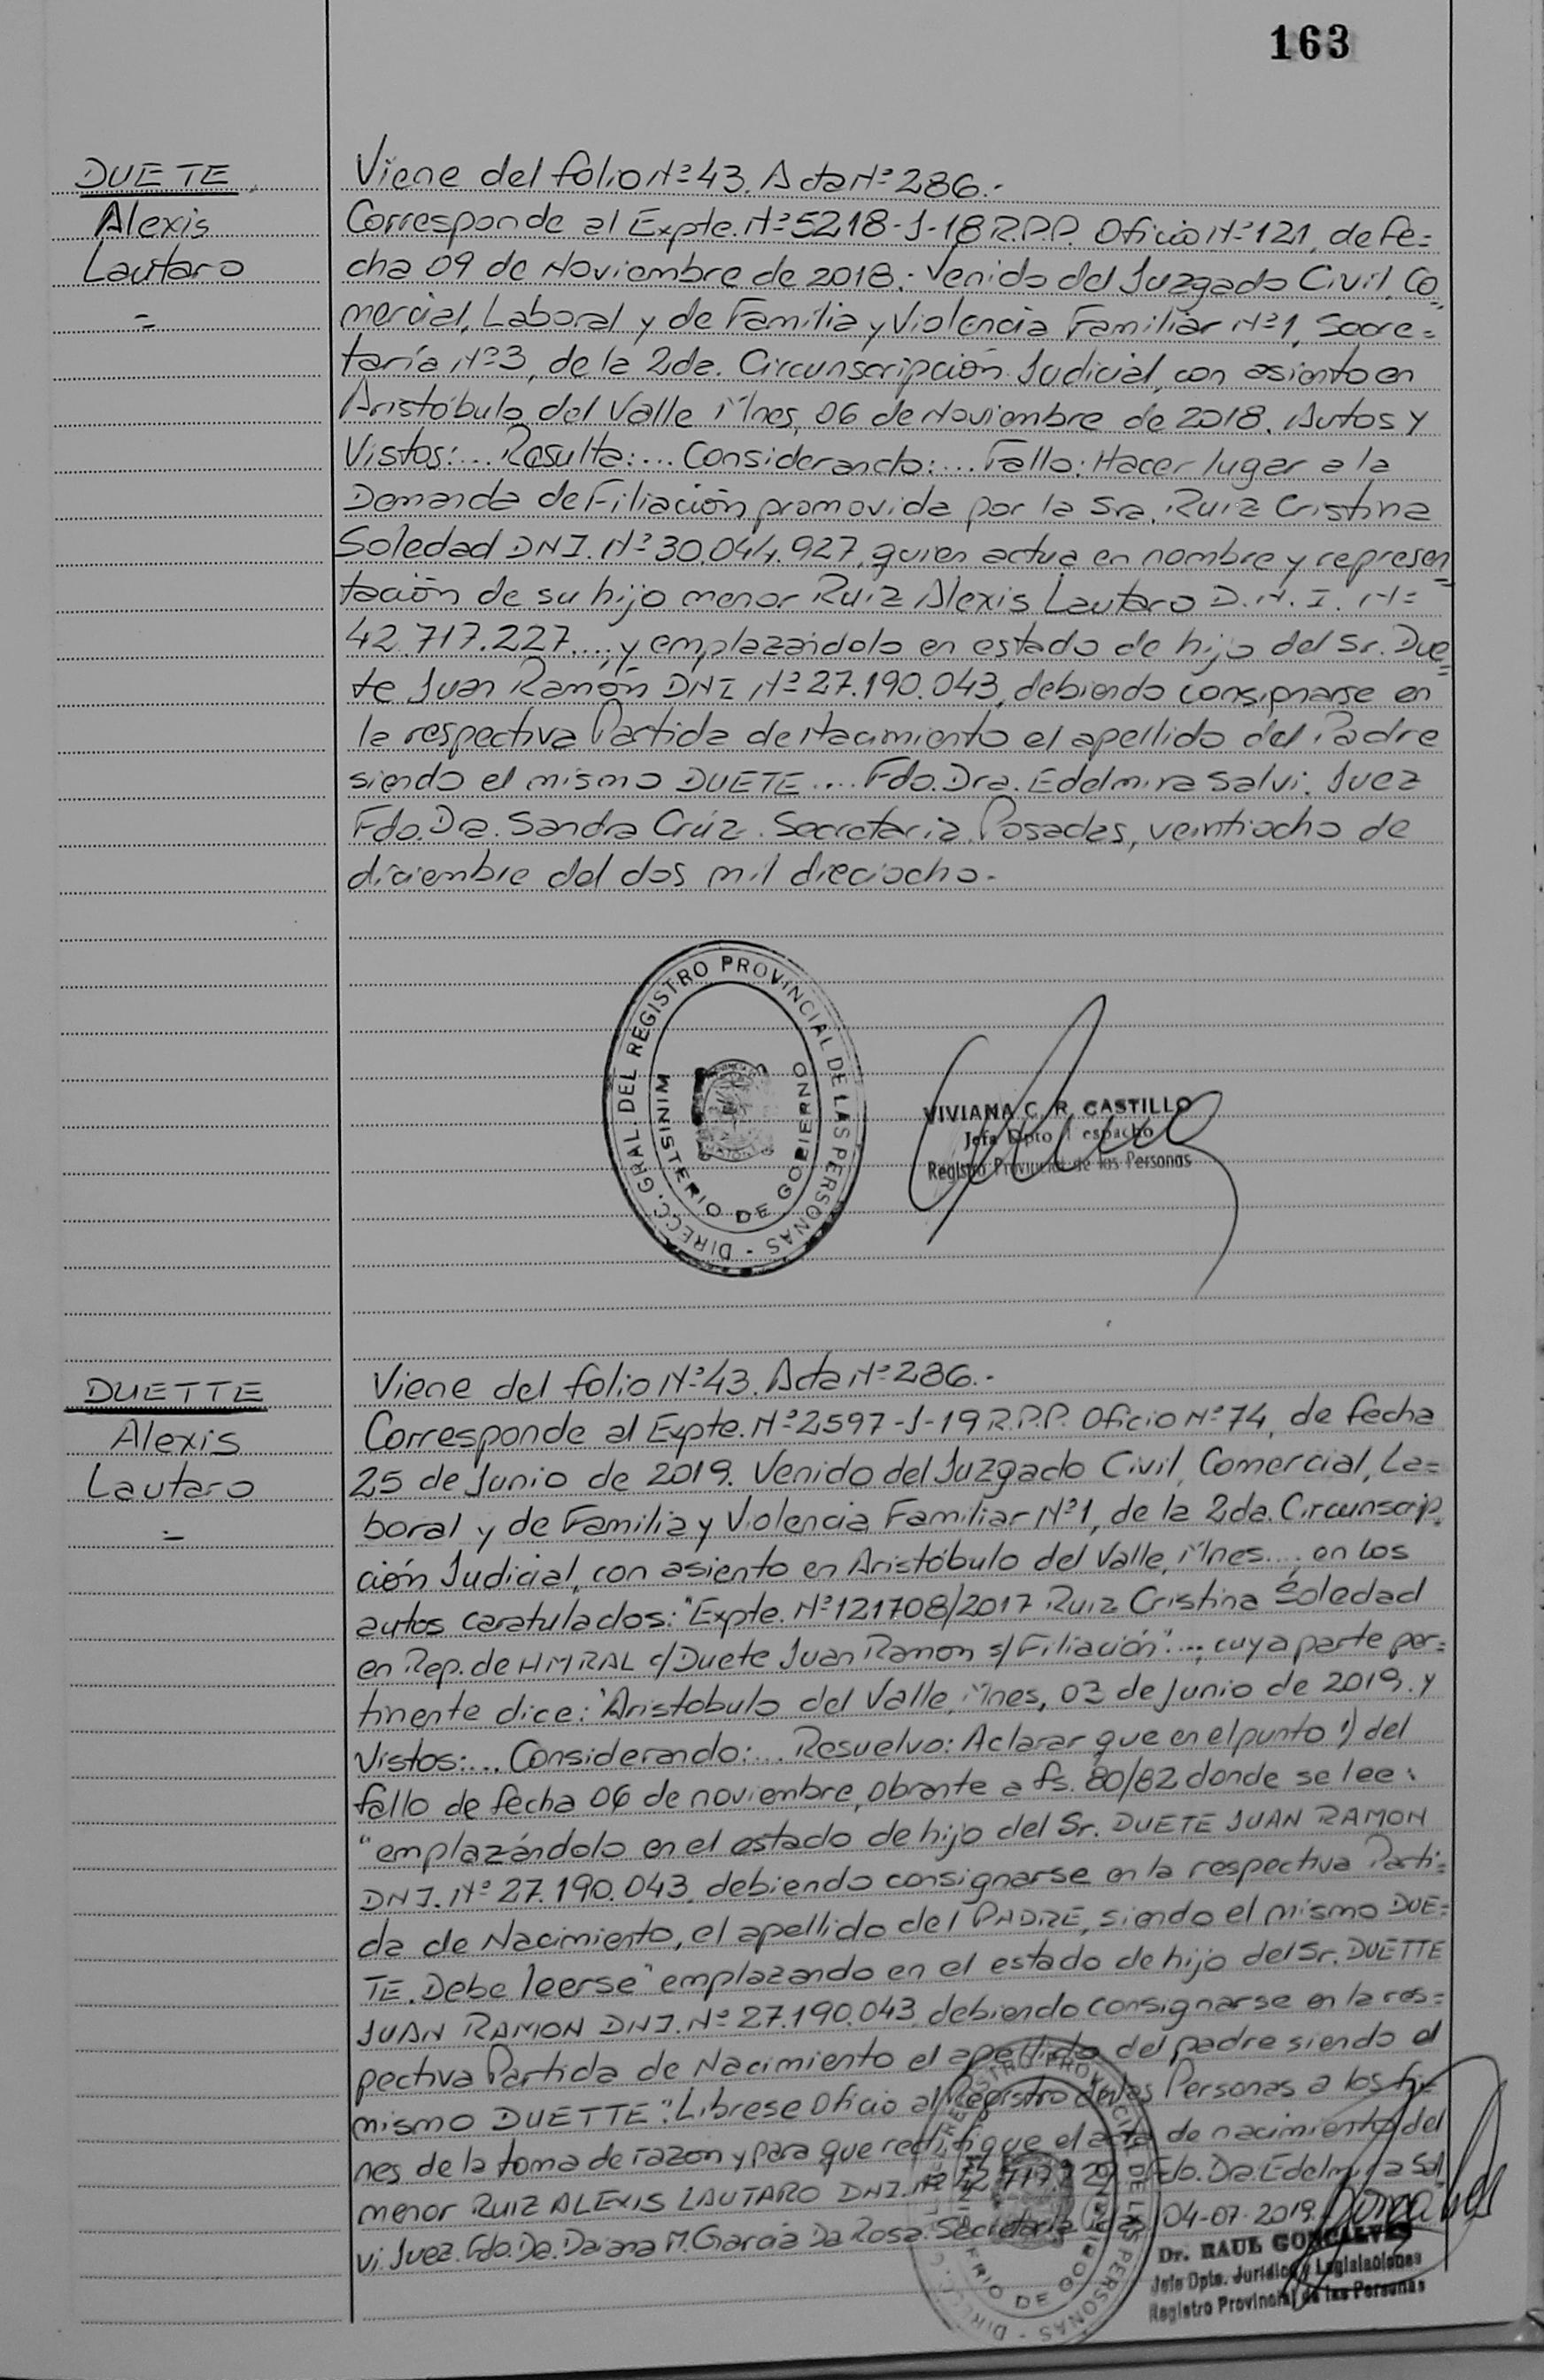 163
DUETE
Alexis
Lautaro
=
Viene del folio Nº 43. Acta Nº 286.-
Corresponde al Expte. Nº 5218-J-18 R.P.P. Oficio Nº 121, de fe=
cha 09 de Noviembre de 2018. Venido del Juzgado Civil, Co=
mercial, Laboral y de Familia y Violencia Familiar Nº 1, Secre=
taría Nº 3, de la 2da. Circunscripción Judicial, con asiento en
Aristóbulo del Valle Mnes, 06 de Noviembre de 2018. Autos y
Vistos:... Resulta:... Considerando:... Fallo: Hacer lugar a la
Demanda de Filiación promovida por la Sra. Ruiz Cristina
Soledad DNI. Nº 30.044.927, quien actua en nombre y represen=
tación de su hijo menor Ruiz Alexis Lautaro D.N.I. Nº
42.717.227...; y emplazándolo en estado de hijo del Sr. Due=
te Juan Ramón DNI Nº 27.190.043, debiendo consignarse en
la respectiva Partida de Nacimiento el apellido del Padre
siendo el mismo DUETE.... Fdo. Dra. Edelmira Salvi. Juez
Fdo. Dra. Sandra Crúz. Secretaria. Posadas, veintiocho de
diciembre del dos mil dieciocho.-
DIRECC. GRAL DEL REGISTRO PROVINCIAL DE LAS PERSONAS -
MINISTERIO DE GOBIERNO
VIVIANA C. R. CASTILLO
Jefa Dpto Despacho
Registro Provincial de las Personas
DUETTE
Alexis
Lautaro
=
Viene del folio Nº 43. Acta Nº 286.-
Corresponde al Expte. Nº 2597-J-19 R.P.P. Oficio Nº 74, de fecha
25 de Junio de 2019. Venido del Juzgado Civil, Comercial, La=
boral y de Familia y Violencia Familiar Nº 1, de la 2da. Circunscrip=
ción Judicial, con asiento en Aristóbulo del Valle, Mnes...; en los
autos caratulados: "Expte. Nº 121708/2017 Ruiz Cristina Soledad
en Rep. de HMRAL c/ Duete Juan Ramon s/ Filiación"...; cuya parte per=
tinente dice: "Aristobulo del Valle, Mnes, 03 de Junio de 2019. y
Vistos:... Considerando:... Resuelvo: Aclarar que en el punto 1) del
fallo de fecha 06 de noviembre, obrante a fs. 80/82 donde se lee:
"emplazándolo en el estado de hijo del Sr. DUETE JUAN RAMON
DNI. Nº 27.190.043, debiendo consignarse en la respectiva Parti=
da de Nacimiento, el apellido del PADRE, siendo el mismo DUE=
TE. Debe leerse "emplazando en el estado de hijo del Sr. DUETTE
JUAN RAMON DNI. Nº 27.190.043, debiendo consignarse en la res=
pectiva Partida de Nacimiento el apellido del padre siendo el
mismo DUETTE". Librese Oficio al Registro de las Personas a los fi=
nes de la toma de razon y para que rectifique el acta de nacimiento del
menor RUIZ ALEXIS LAUTARO DNI. Nº Fdo. Dra. Edelmira Sal
vi. Juez. Fdo. Dra. Daiana M. García Da Rosa. Secretaria 04-07-2019.
Dr. RAUL GONCALVES
Jefe Dpto. Jurídico y Legislaciones
Registro Provincial de las Personas